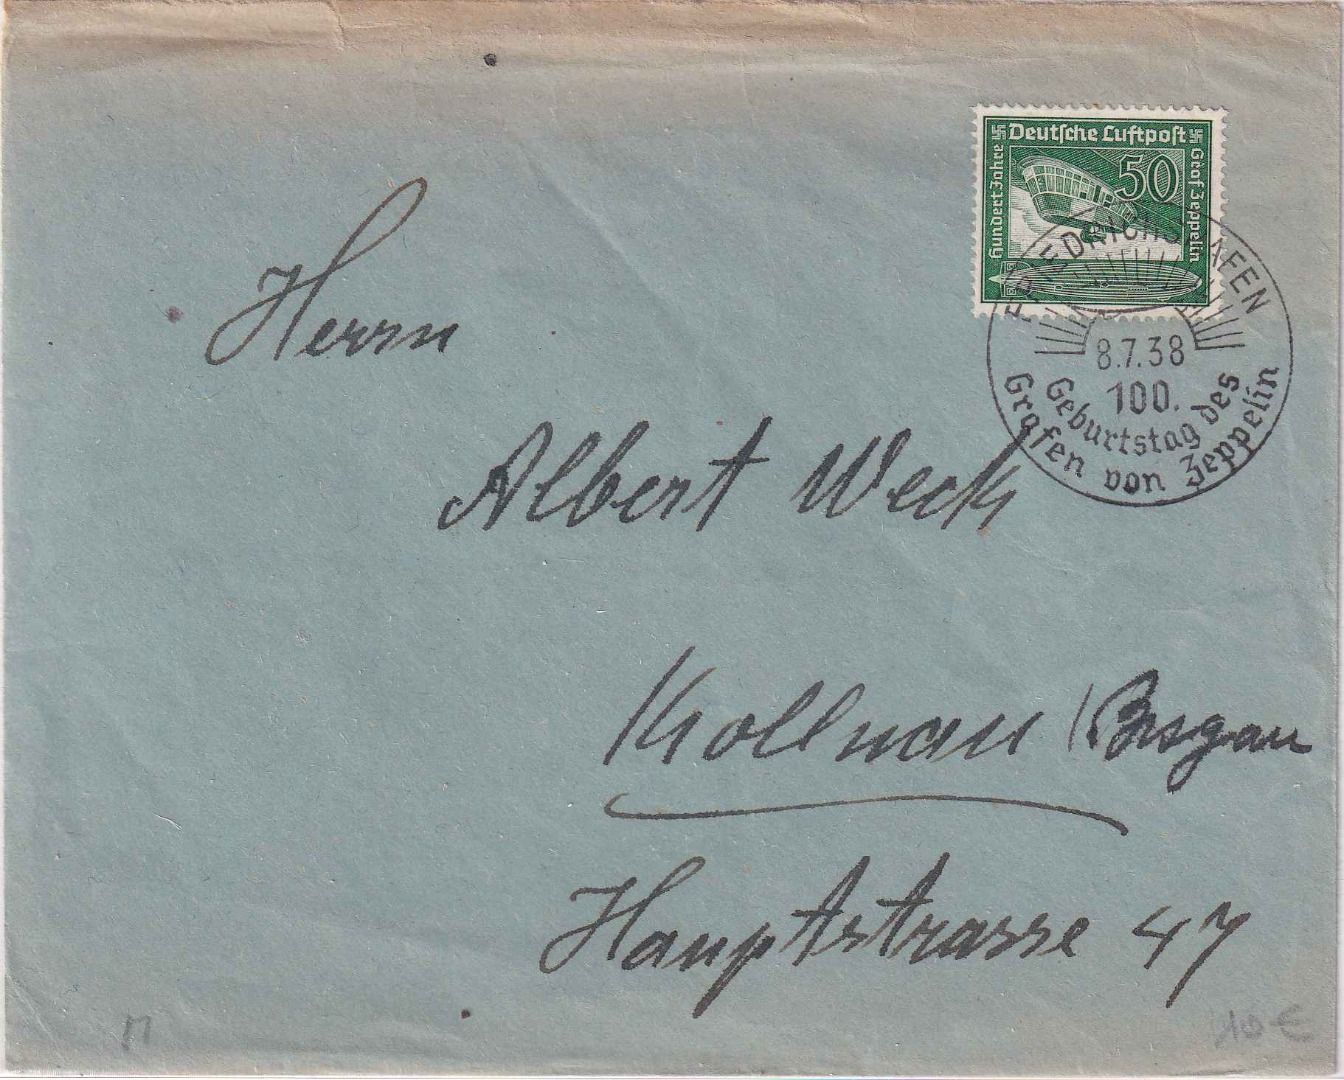 Deutsche Luftpost
Hundert Jahre
50
Graf Zeppelin
FRIEDRICHSHAFEN
8.7.38
100.
Geburtstag des
Grafen von Zeppelin
Herrn
Albert Weck
Kollnau / Brsgau
Hauptstrasse 47
10 €